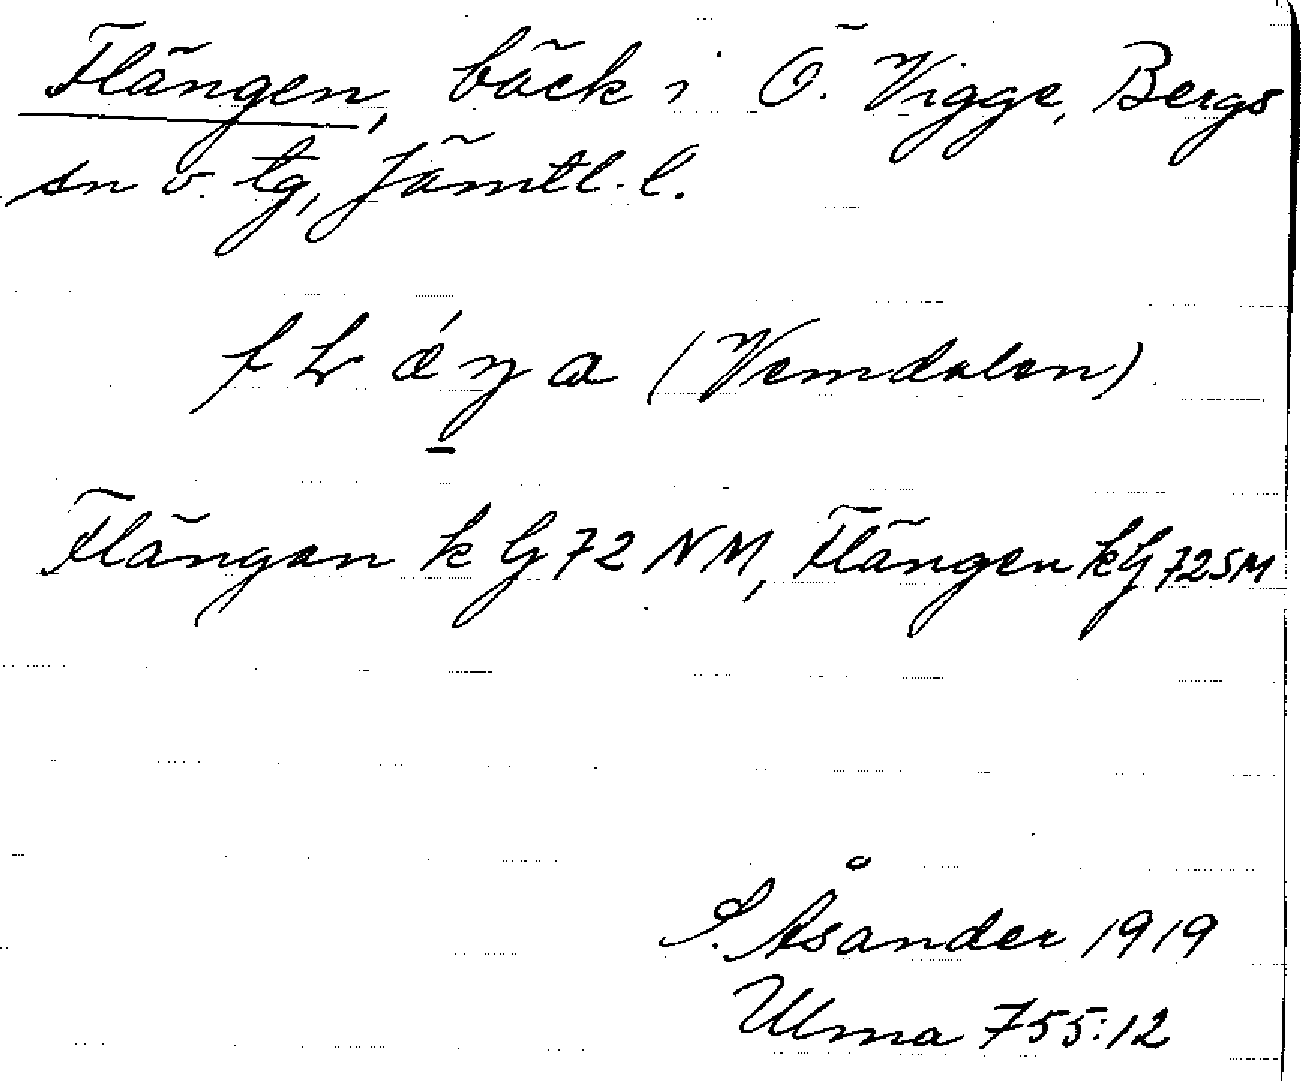 Flängen, bäck i Ö. Vigge, Bergs
sn o. tg, Jämtl. l.
fLǽŋa (Vemdalen)
Flängan k G 72 NM, Flängen k G 72 SM
S. Åsander 1919
Ulma 755:12